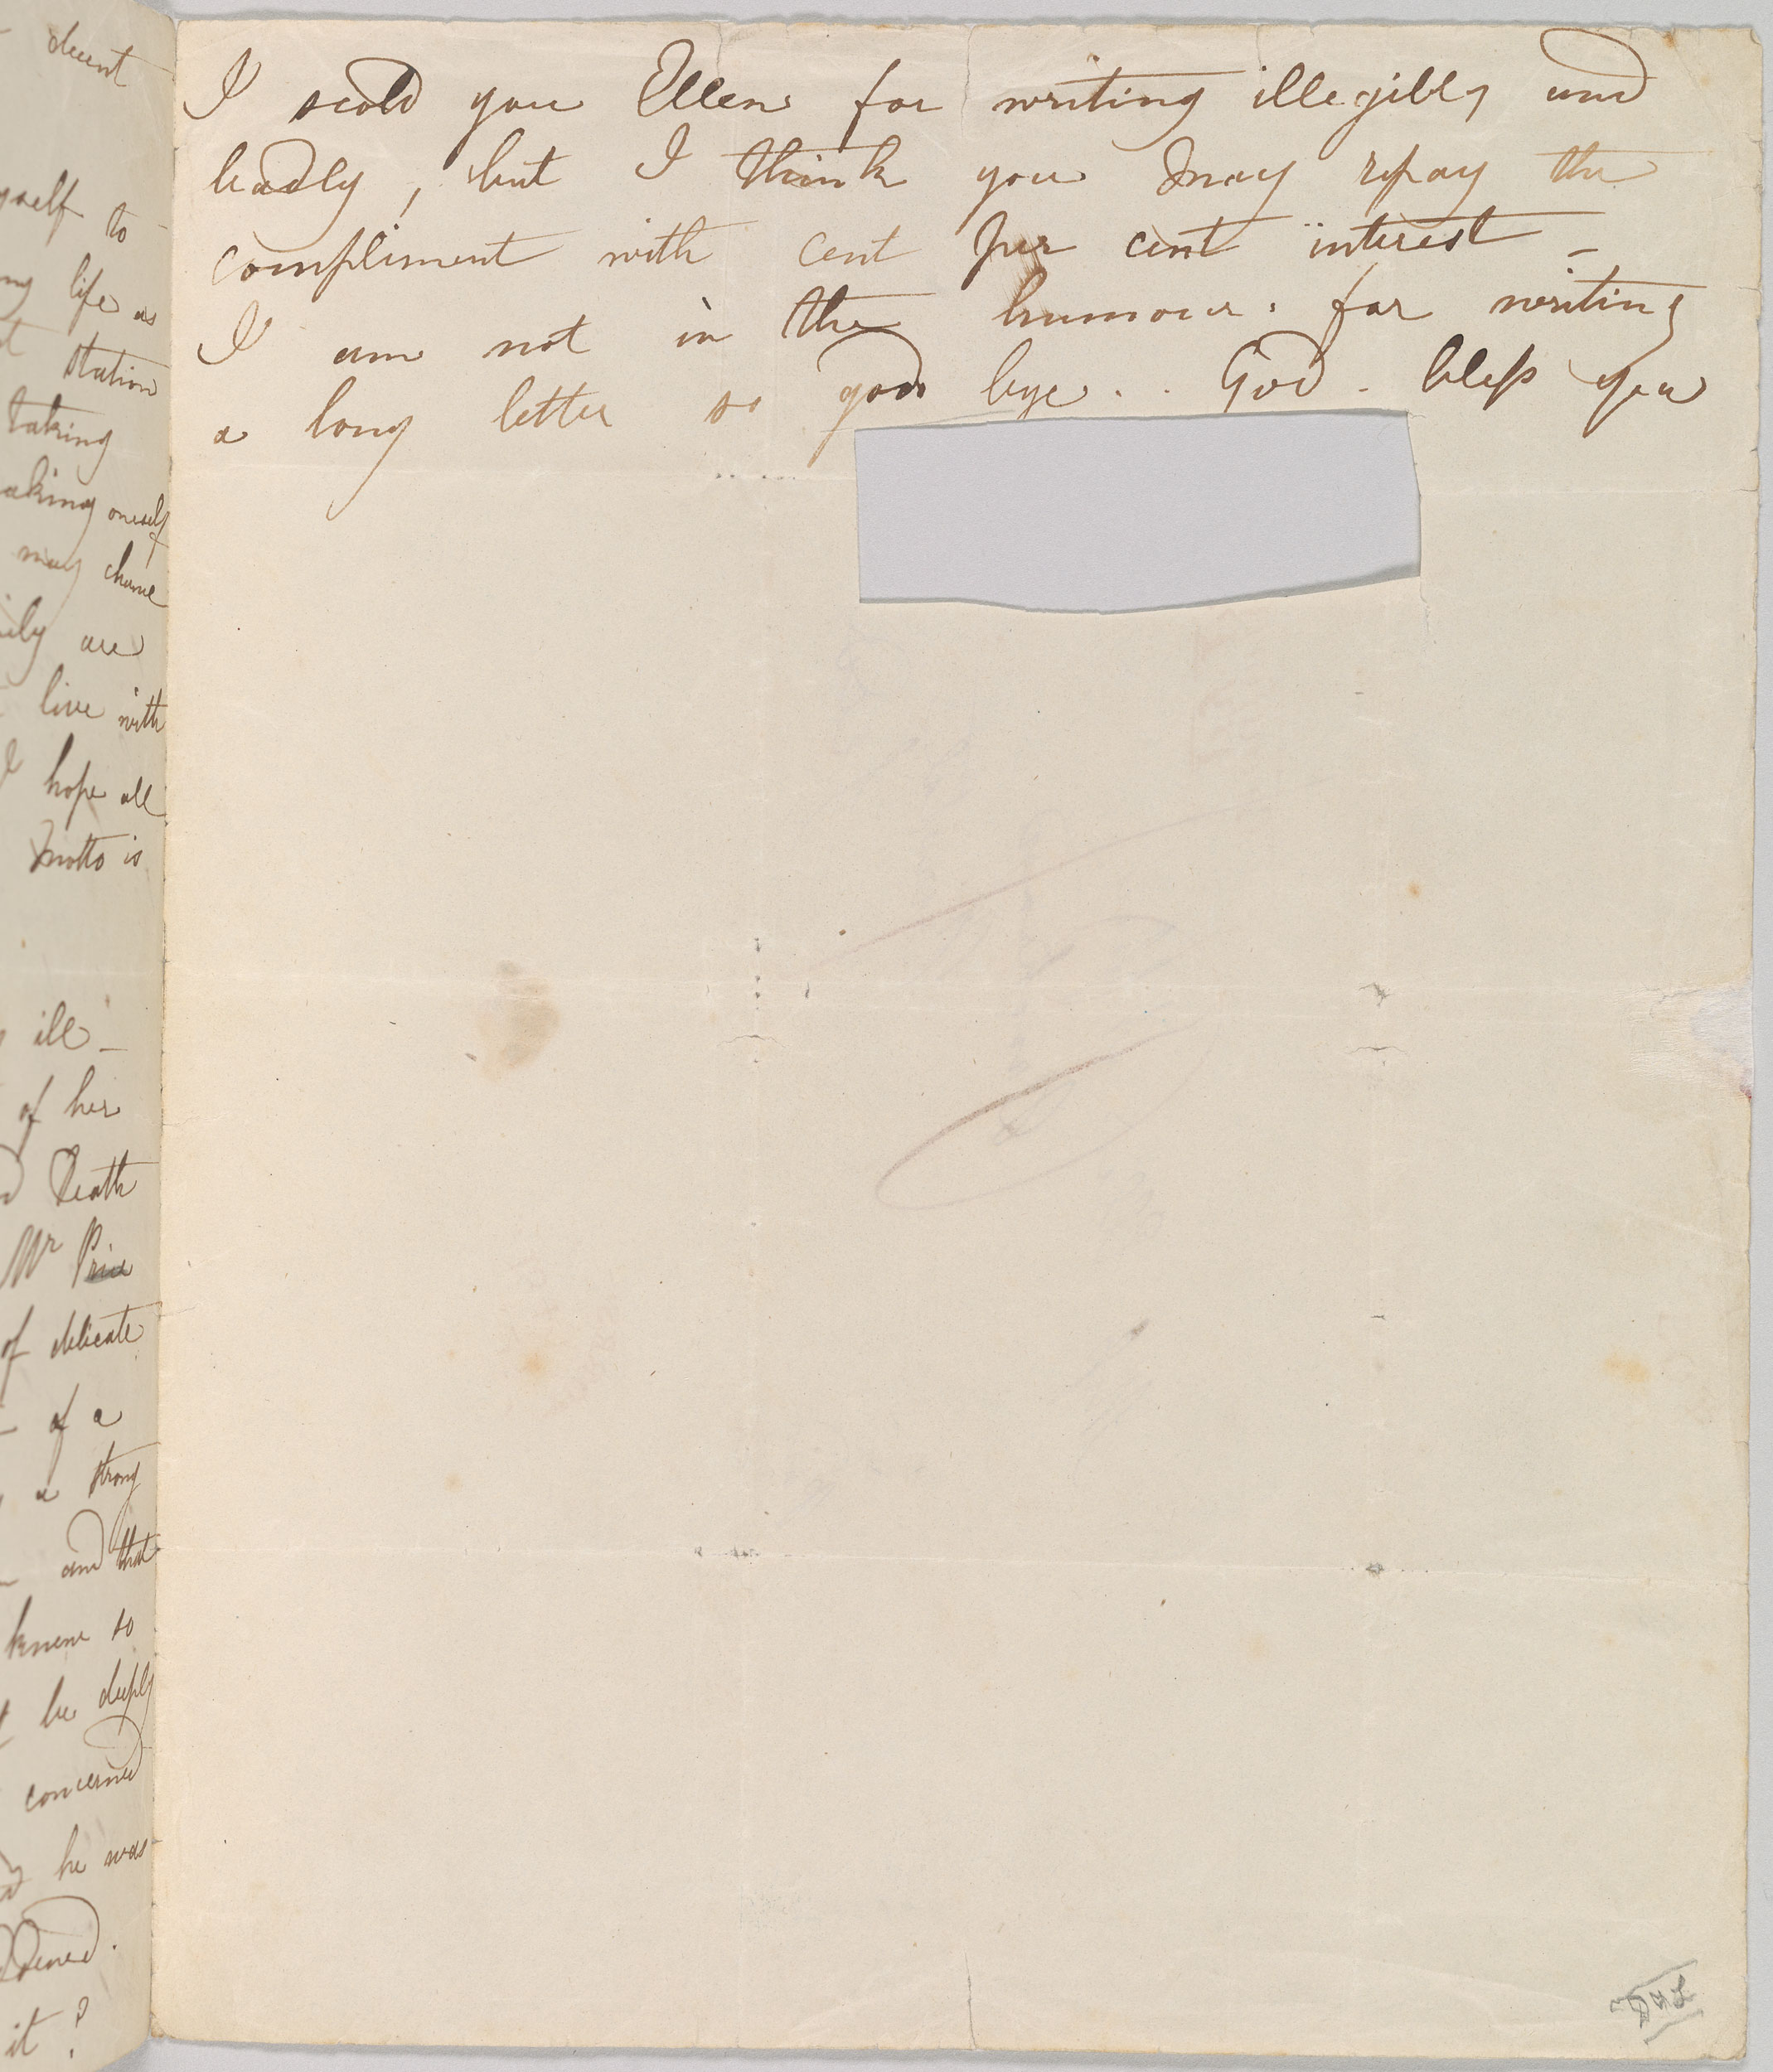 decent
myself to
ng life as
t station
taking
aking oneself
may chance
ily are
live with
I hope all
motto is
ill —
of her
d Death
Mr Price
of delicate
— of a
a strong
— and that
knew so
be deeply
concerned
he was
it?
I scold you Ellen for writing illegibly and
badly, but I think you may repay the
compliment with cent per cent interest —
I am not in the humour for writing
a long letter so good bye. . God bless you